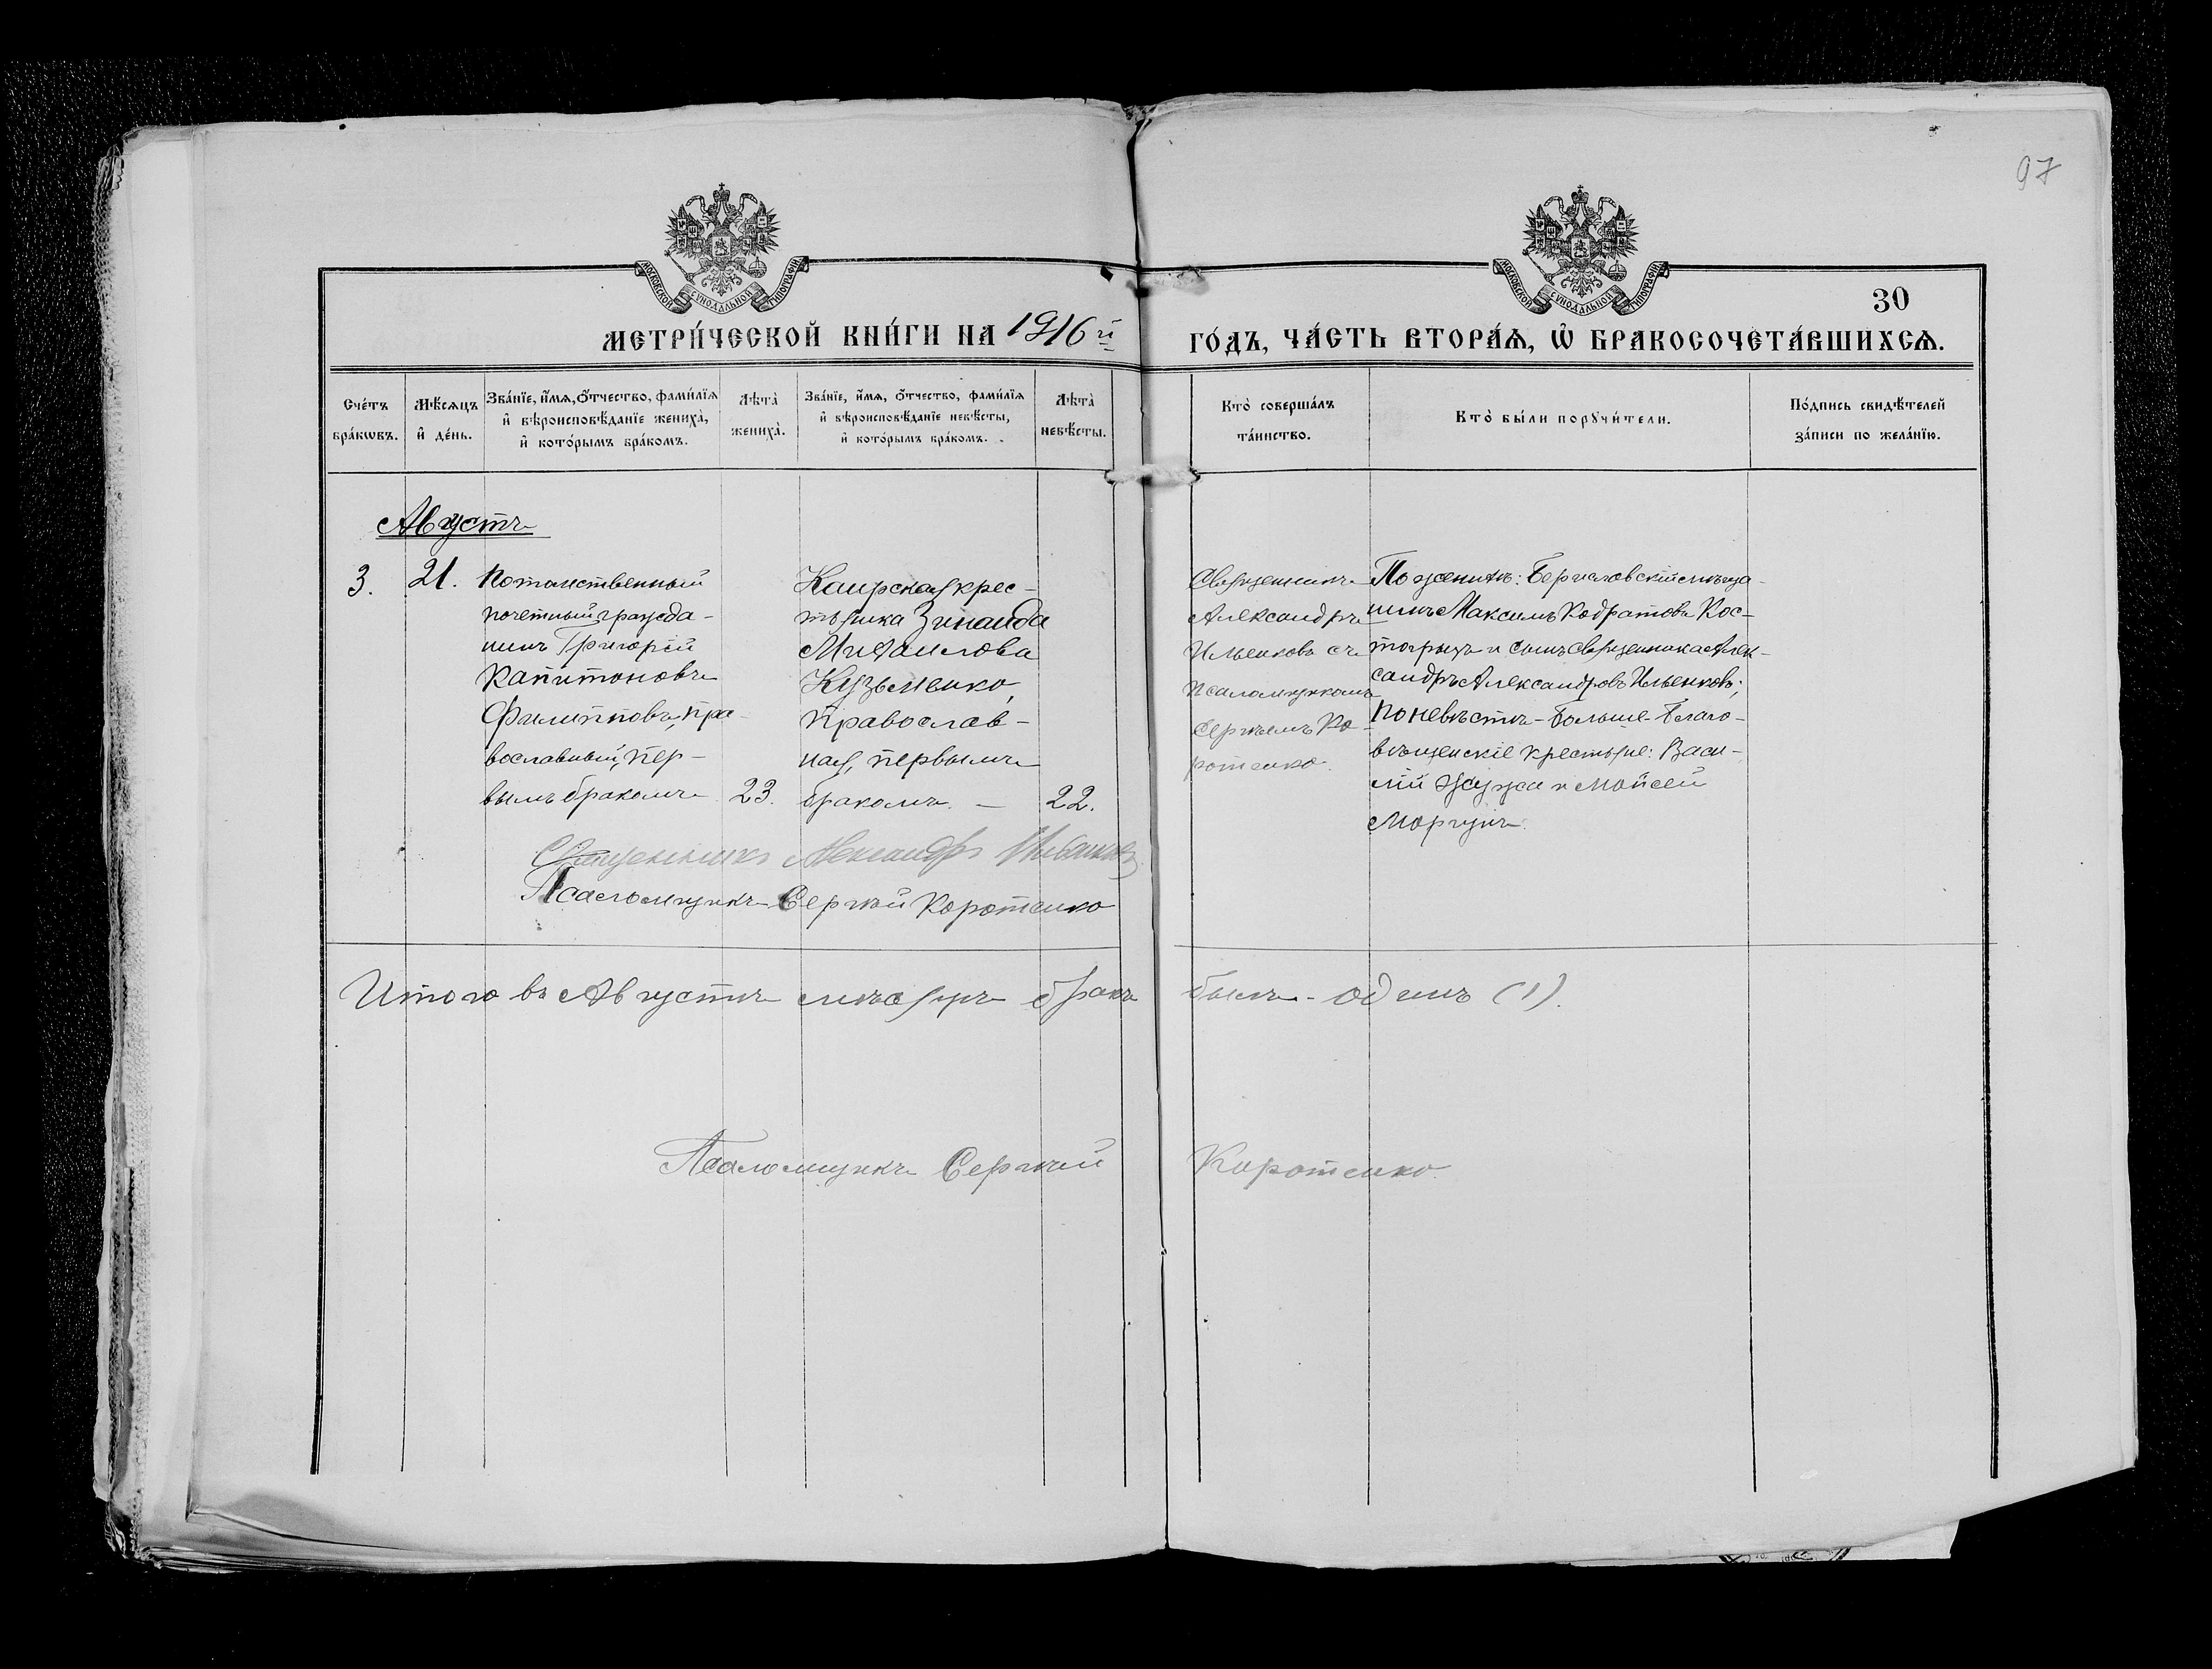 97
МОСКОВСКОЙ СѴНОДАЛЬНОЙ ТИПОГРАФІИ
МОСКОВСКОЙ СѴНОДАЛЬНОЙ ТИПОГРАФІИ
30
МЕТРИ́ЧЕСКОЙ КНИ́ГИ НА 1916 й
ГО́ДЪ, ЧА́СТЬ ВТОРА́Ѧ, Ѡ҆ БРАКОСОЧЕТА́ВШИХСѦ.
Сче́тъ
бра́кѡвъ.
Мѣ́сѧцъ
и҆ де́нь.
Зва́нїе, и҆́мѧ, ѻ҆́тчество, фами́лїѧ
и҆ вѣроисповѣ́данїе жениха̀,
и҆ кото́рымъ бра́комъ.
Лѣта̀
жениха̀.
Зва́нїе, и҆́мѧ, ѻ҆́тчество, фами́лїѧ
и҆ вѣроисповѣ́данїе невѣ́сты,
и҆ кото́рымъ бра́комъ.
Лѣта̀
невѣ́сты.
Кто̀ соверша́лъ
та́инство.
Кто̀ бы́ли порꙋчи́тели.
По́дпись свидѣ́телей
за́писи по жела́нїю.
Августъ
3.
21.
Потомственный
почетный гражда-
нинъ Григорій
Капитоновъ
Филипповъ, пра-
вославный, пер-
вымъ бракомъ
23.
Каирская крес-
тьянка Зинаида
Михаилова
Кузьменко,
православ-
ная, первымъ
бракомъ. —
22.
Священникъ
Александръ
Ильенковъ съ
псаломщикомъ
Сергѣемъ Ко-
ротенко.
По женихѣ: Бериславскій мѣща-
нинъ Максимъ Кодратовъ Кос-
тогрызъ и сынъ священника Алек-
сандръ Александровъ Ильенковъ;
по невѣстѣ - Больше-Благо-
вѣщенскіе крестьяне: Васи-
лій и Мойсей
Моргунъ.
Священникъ Александръ Ильенковъ
Псаломщикъ Сергѣй Коротенко
Итого въ Августѣ мѣсяцѣ бракъ былъ - одинъ (1).
Псаломщикъ Сергѣй Коротенко.